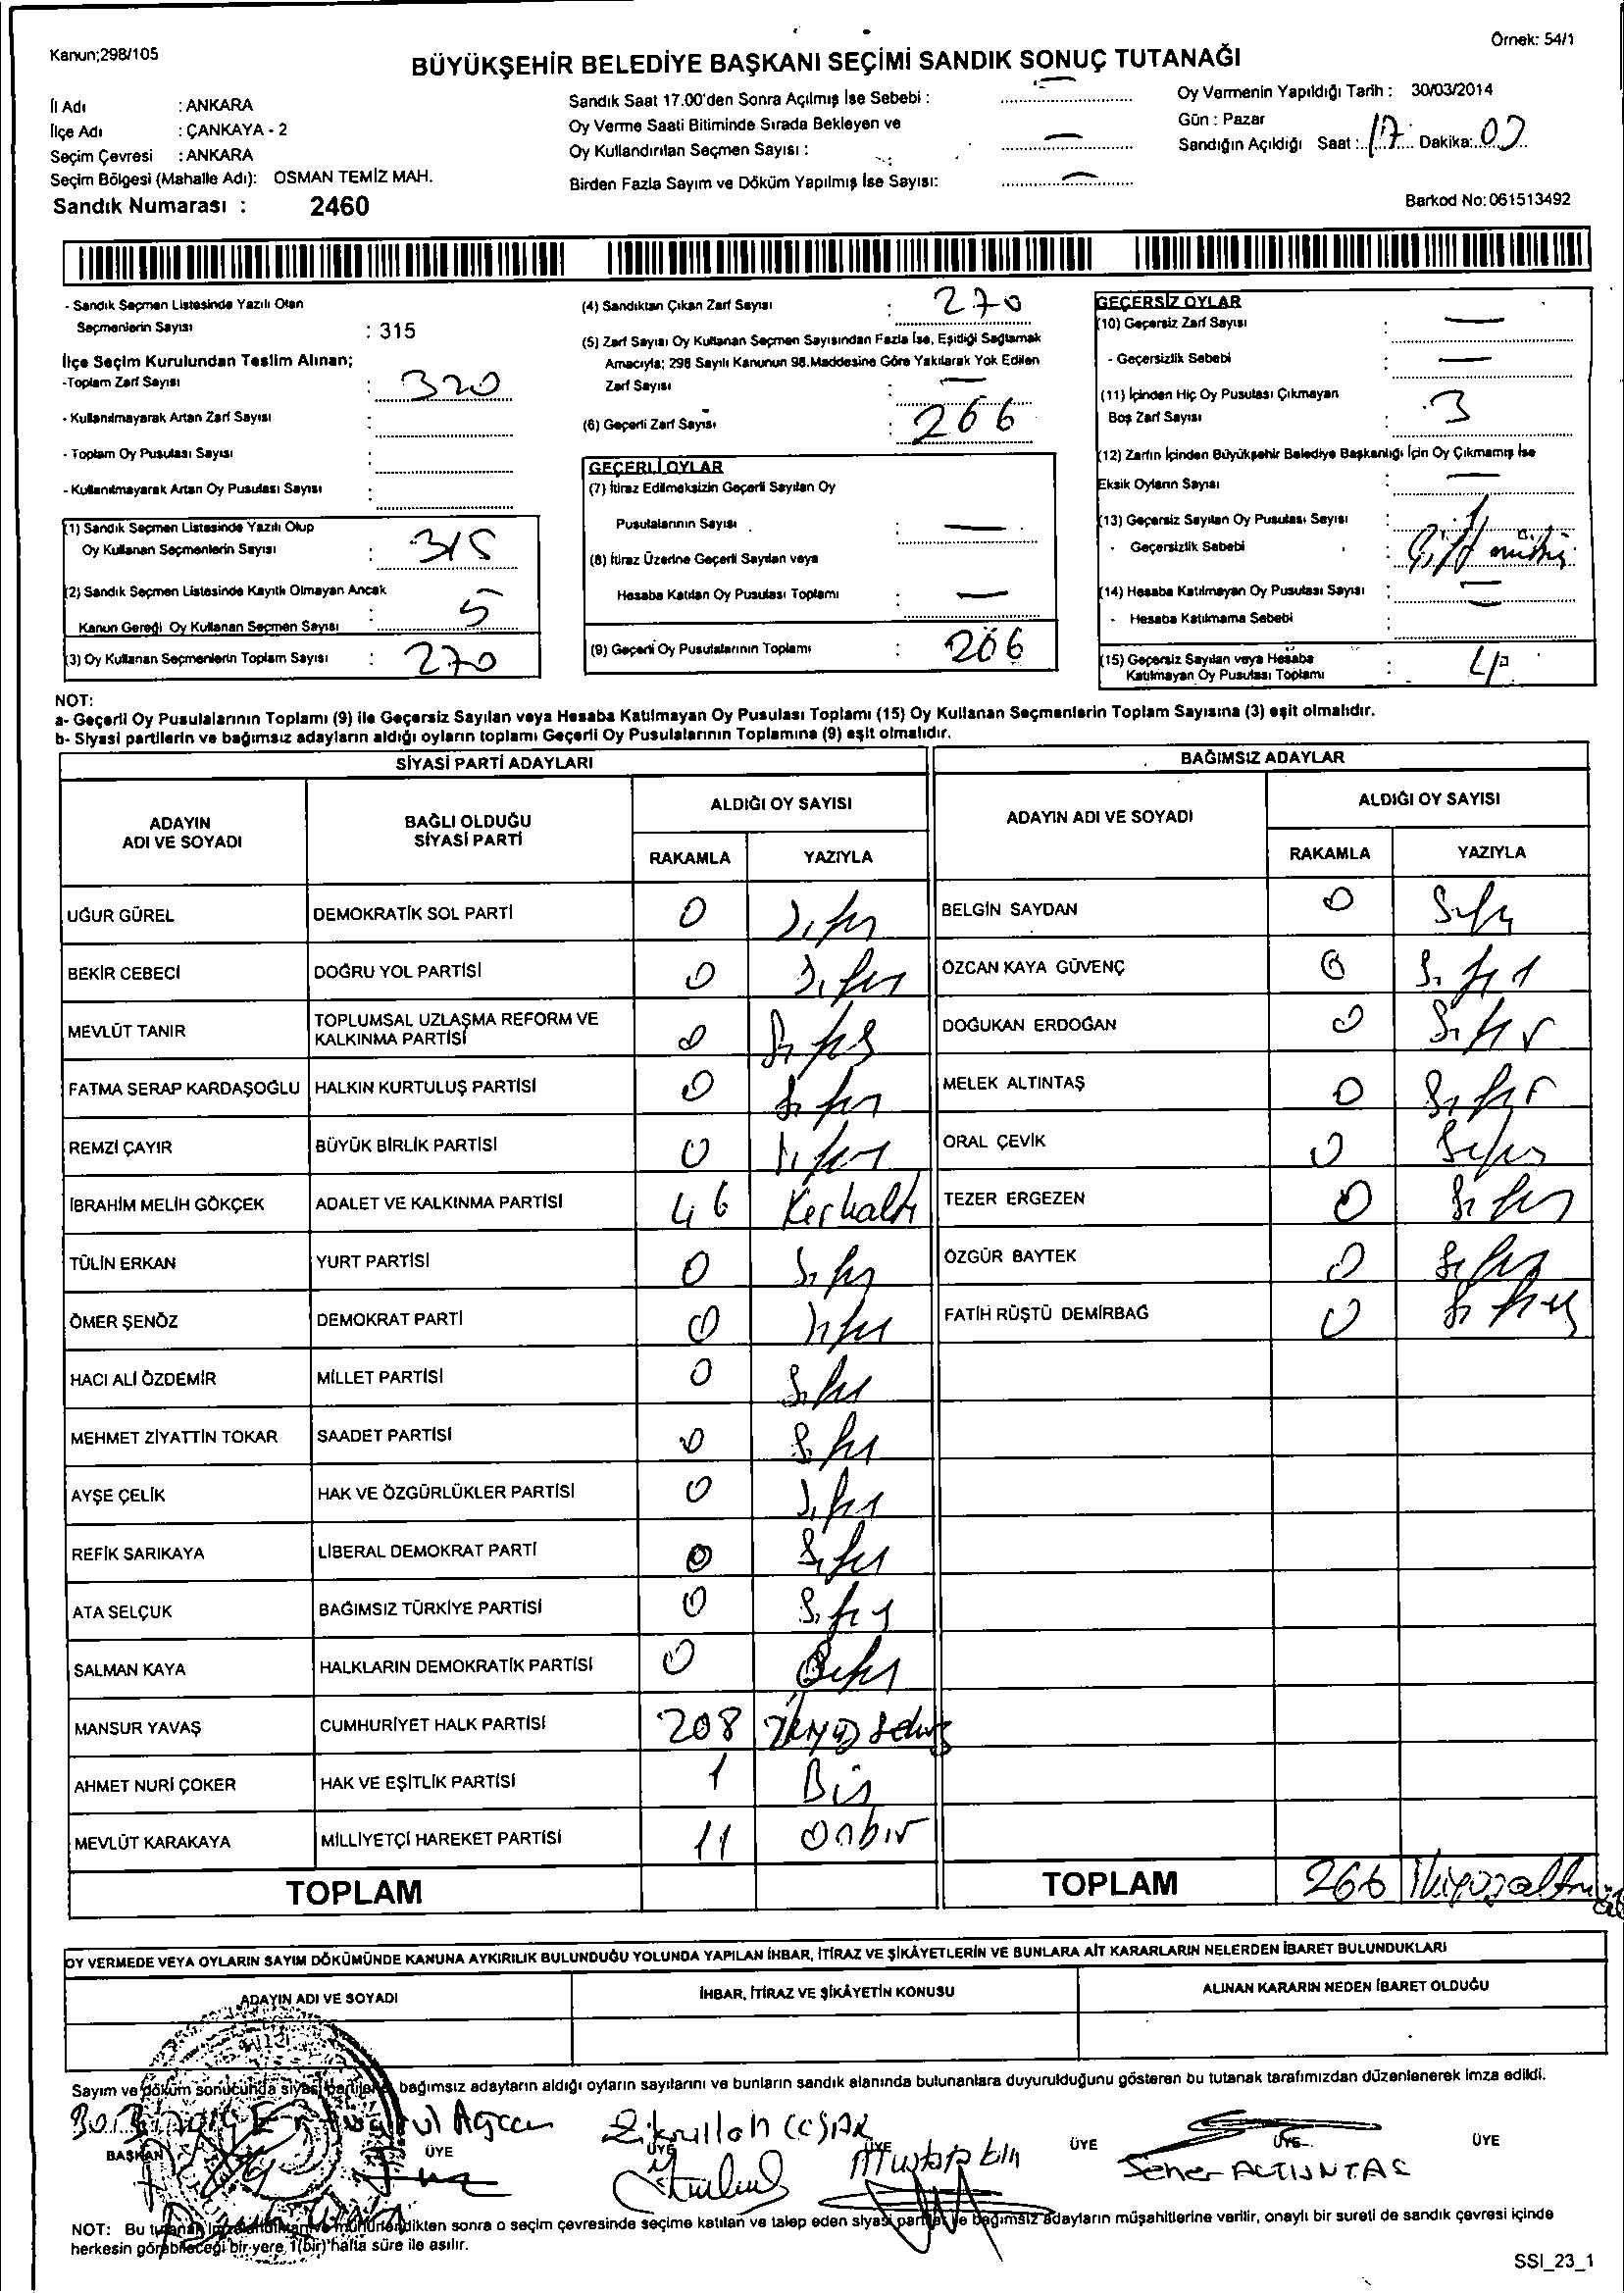 Kanun;298/105
Örnek: 54/1
BÜYÜKŞEHİR BELEDİYE BAŞKANI SEÇİMİ SANDIK SONUÇ TUTANAĞI
İl Adı : ANKARA
İlçe Adı : ÇANKAYA - 2
Seçim Çevresi : ANKARA
Seçim Bölgesi (Mahalle Adı): OSMAN TEMİZ MAH.
Sandık Numarası : 2460
Sandık Saat 17.00'den Sonra Açılmış İse Sebebi : —
Oy Verme Saati Bitiminde Sırada Bekleyen ve
Oy Kullandırılan Seçmen Sayısı : —
Birden Fazla Sayım ve Döküm Yapılmış İse Sayısı: —
Oy Vermenin Yapıldığı Tarih : 30/03/2014
Gün : Pazar
Sandığın Açıldığı Saat : 17 Dakika:
Barkod No: 061513492
- Sandık Seçmen Listesinde Yazılı Olan
Seçmenlerin Sayısı : 315
İlçe Seçim Kurulundan Teslim Alınan;
-Toplam Zarf Sayısı : 320
- Kullanılmayarak Artan Zarf Sayısı :
- Toplam Oy Pusulası Sayısı :
- Kullanılmayarak Artan Oy Pusulası Sayısı :
(1) Sandık Seçmen Listesinde Yazılı Olup
Oy Kullanan Seçmenlerin Sayısı : 315
(2) Sandık Seçmen Listesinde Kayıtlı Olmayan Ancak
Kanun Gereği Oy Kullanan Seçmen Sayısı : 5
(3) Oy Kullanan Seçmenlerin Toplam Sayısı : 270
(4) Sandıktan Çıkan Zarf Sayısı : 270
(5) Zarf Sayısı Oy Kullanan Seçmen Sayısından Fazla İse, Eşitliği Sağlamak
Amacıyla; 298 Sayılı Kanunun 98.Maddesine Göre Yakılarak Yok Edilen
Zarf Sayısı : —
(6) Geçerli Zarf Sayısı : 266
GEÇERLİ OYLAR
(7) İtiraz Edilmeksizin Geçerli Sayılan Oy
Pusulalarının Sayısı : —
(8) İtiraz Üzerine Geçerli Sayılan veya
Hesaba Katılan Oy Pusulası Toplamı : —
(9) Geçerli Oy Pusulalarının Toplamı : 266
GEÇERSİZ OYLAR
(10) Geçersiz Zarf Sayısı : —
- Geçersizlik Sebebi : —
(11) İçinden Hiç Oy Pusulası Çıkmayan
Boş Zarf Sayısı : 3
(12) Zarfın İçinden Büyükşehir Belediye Başkanlığı İçin Oy Çıkmamış İse
Eksik Oyların Sayısı : —
(13) Geçersiz Sayılan Oy Pusulası Sayısı : 1
- Geçersizlik Sebebi : Çift mühür
(14) Hesaba Katılmayan Oy Pusulası Sayısı : —
- Hesaba Katılmama Sebebi :
(15) Geçersiz Sayılan veya Hesaba
Katılmayan Oy Pusulası Toplamı : 4
NOT:
a- Geçerli Oy Pusulalarının Toplamı (9) ile Geçersiz Sayılan veya Hesaba Katılmayan Oy Pusulası Toplamı (15) Oy Kullanan Seçmenlerin Toplam Sayısına (3) eşit olmalıdır.
b- Siyasi partilerin ve bağımsız adayların aldığı oyların toplamı Geçerli Oy Pusulalarının Toplamına (9) eşit olmalıdır.
SİYASİ PARTİ ADAYLARI
ADAYIN ADI VE SOYADI
BAĞLI OLDUĞU SİYASİ PARTİ
ALDIĞI OY SAYISI
RAKAMLA YAZIYLA
UĞUR GÜREL DEMOKRATİK SOL PARTİ 0 Sıfır
BEKİR CEBECİ DOĞRU YOL PARTİSİ 0 Sıfır
MEVLÜT TANIR TOPLUMSAL UZLAŞMA REFORM VE KALKINMA PARTİSİ 0 Sıfır
FATMA SERAP KARDAŞOĞLU HALKIN KURTULUŞ PARTİSİ 0 Sıfır
REMZİ ÇAYIR BÜYÜK BİRLİK PARTİSİ 0 Sıfır
İBRAHİM MELİH GÖKÇEK ADALET VE KALKINMA PARTİSİ 46 Kırkaltı
TÜLİN ERKAN YURT PARTİSİ 0 Sıfır
ÖMER ŞENÖZ DEMOKRAT PARTİ 0 Sıfır
HACI ALİ ÖZDEMİR MİLLET PARTİSİ 0 Sıfır
MEHMET ZİYATTİN TOKAR SAADET PARTİSİ 0 Sıfır
AYŞE ÇELİK HAK VE ÖZGÜRLÜKLER PARTİSİ 0 Sıfır
REFİK SARIKAYA LİBERAL DEMOKRAT PARTİ 0 Sıfır
ATA SELÇUK BAĞIMSIZ TÜRKİYE PARTİSİ 0 Sıfır
SALMAN KAYA HALKLARIN DEMOKRATİK PARTİSİ 0 Sıfır
MANSUR YAVAŞ CUMHURİYET HALK PARTİSİ 208 İkiyüz sekiz
AHMET NURİ ÇOKER HAK VE EŞİTLİK PARTİSİ 1 Bir
MEVLÜT KARAKAYA MİLLİYETÇİ HAREKET PARTİSİ 11 Onbir
TOPLAM
BAĞIMSIZ ADAYLAR
ADAYIN ADI VE SOYADI
ALDIĞI OY SAYISI
RAKAMLA YAZIYLA
BELGİN SAYDAN 0 Sıfır
ÖZCAN KAYA GÜVENÇ 0 Sıfır
DOĞUKAN ERDOĞAN 0 Sıfır
MELEK ALTINTAŞ 0 Sıfır
ORAL ÇEVİK 0 Sıfır
TEZER ERGEZEN 0 Sıfır
ÖZGÜR BAYTEK 0 Sıfır
FATİH RÜŞTÜ DEMİRBAĞ 0 Sıfır
TOPLAM 266
OY VERMEDE VEYA OYLARIN SAYIM DÖKÜMÜNDE KANUNA AYKIRILIK BULUNDUĞU YOLUNDA YAPILAN İHBAR, İTİRAZ VE ŞİKÂYETLERİN VE BUNLARA AİT KARARLARIN NELERDEN İBARET BULUNDUKLARI
ADAYIN ADI VE SOYADI
İHBAR, İTİRAZ VE ŞİKÂYETİN KONUSU
ALINAN KARARIN NEDEN İBARET OLDUĞU
Sayım ve döküm sonucunda siyasi partilerin, bağımsız adayların aldığı oyların sayılarını ve bunların sandık alanında bulunanlara duyurulduğunu gösteren bu tutanak tarafımızdan düzenlenerek imza edildi.
Zikrullah Mustafa
Seher ALTUNTAŞ
BAŞKAN ÜYE ÜYE ÜYE ÜYE ÜYE ÜYE
NOT: Bu tutanak imzalandıktan ve mühürlendikten sonra o seçim çevresinde seçime katılan ve talep eden siyasi partiler ve bağımsız adayların müşahitlerine verilir, onaylı bir sureti de sandık çevresi içinde
herkesin görebileceği bir yere 1(bir) hafta süre ile asılır.
SSI_23_1